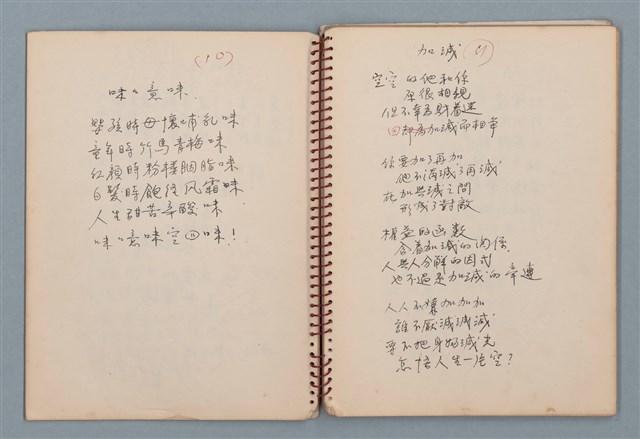 (10)
味味意味
嬰孩時母懷哺乳味
童年時竹馬青梅味
紅顏時粉樓胭脂味
白髮時飽經风霜味
人生甜苦辛酸味
味味意味空回味!
加減 (11)
空空的他和你
原很相親
但不幸為財着迷
却為加減而相牽
你要加了再加
他不滿減了再減
在加與減之間
形成了對敵
權益的函數
含着加減的關係
人與人分解的因式
也不過是加減的牽連
人人不嫌加加加
誰不厭減減減
要不把身始減光
怎悟人生一片空?